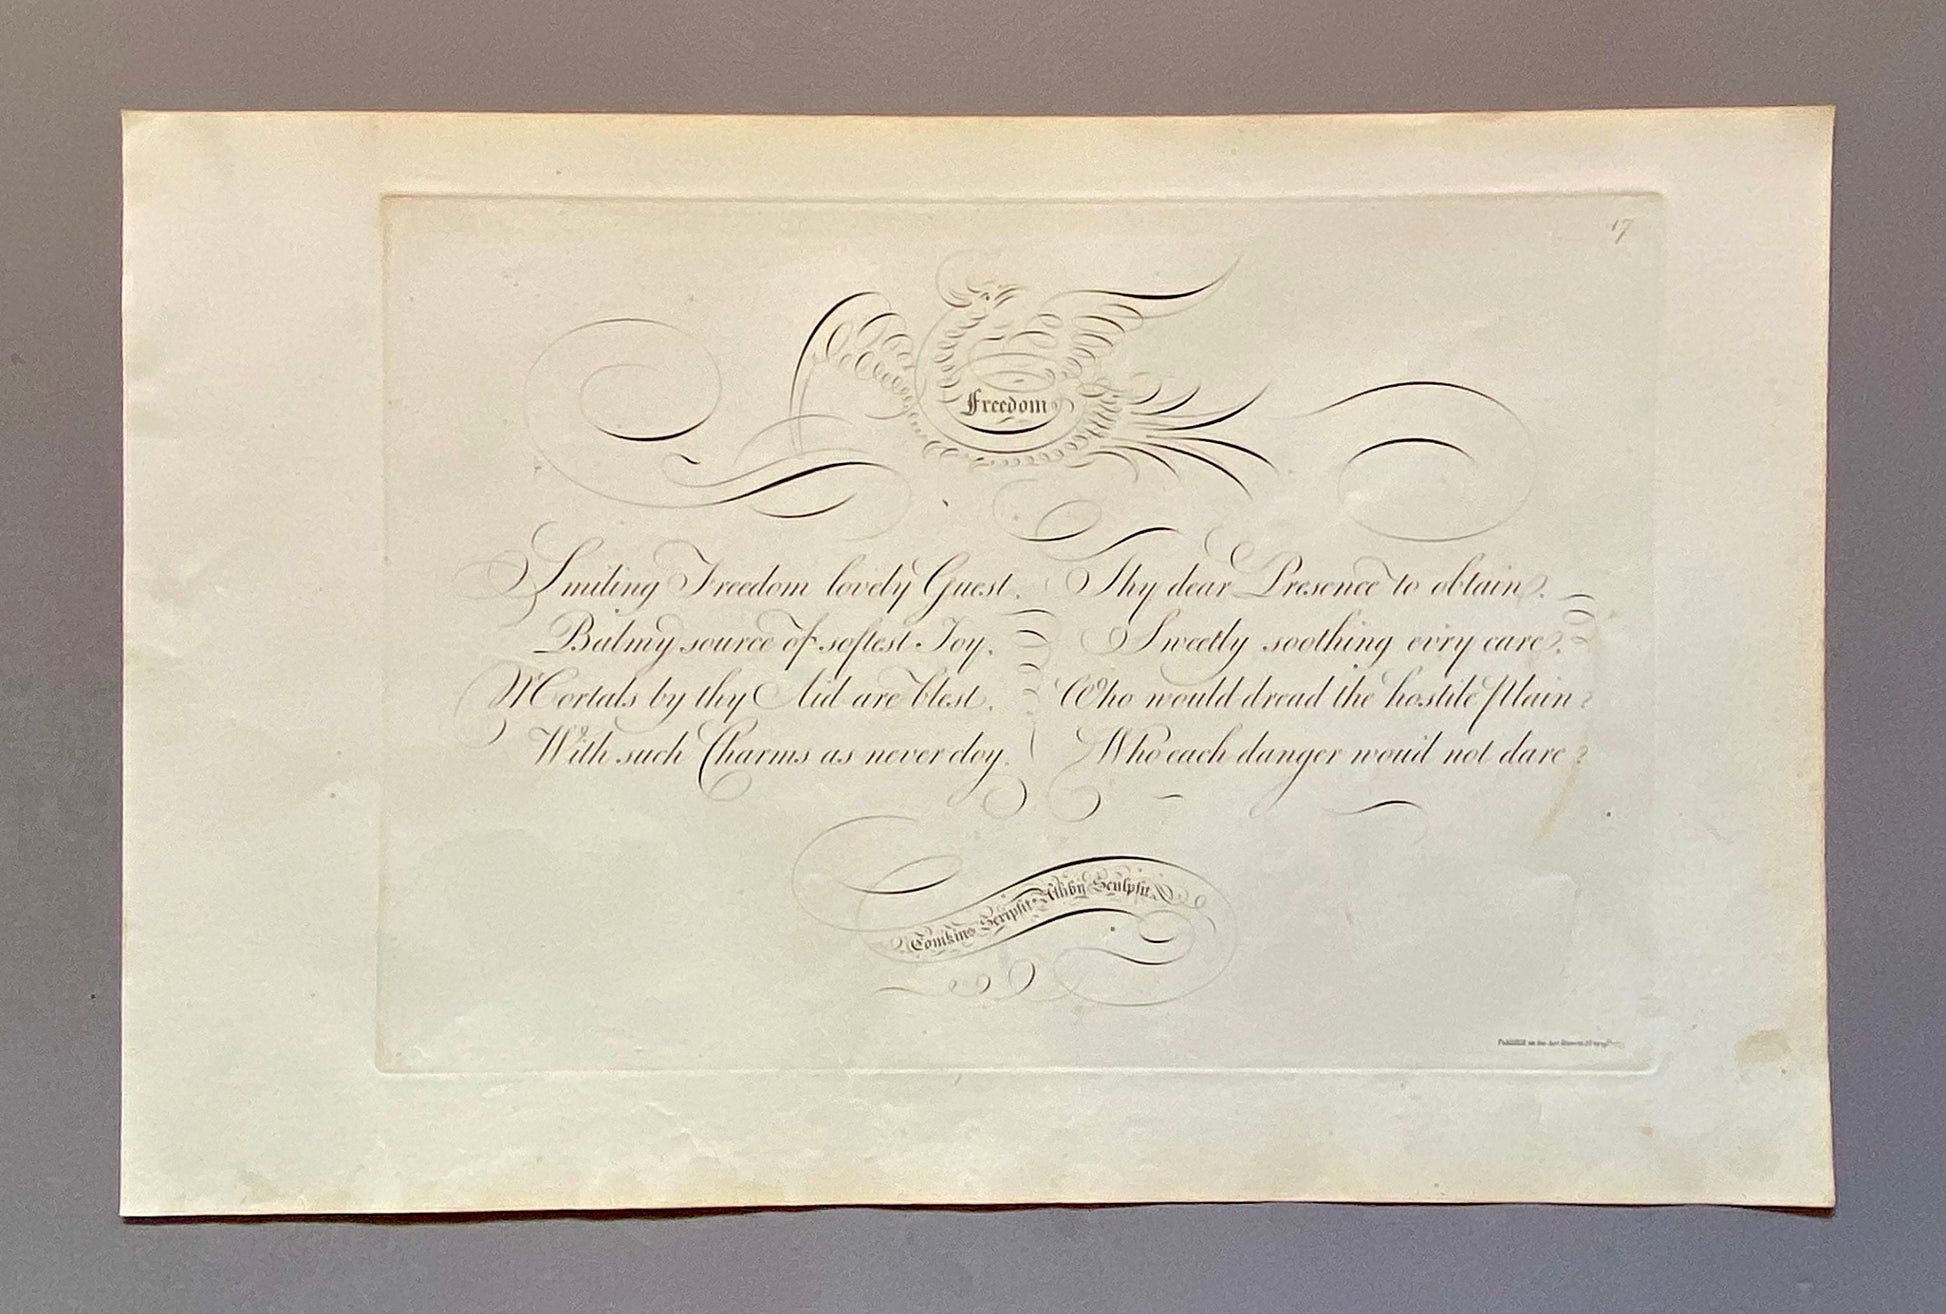 17
Freedom
Smiling Freedom lovely Guest.
Balmy source of softest Joy.
Mortals by thy Aid are blest.
With such Charms as never cloy.
Thy dear Presence to obtain.
Sweetly soothing ev'ry care.
Who would dread the hostile Plain?
Who each danger wou'd not dare?
Tomkins Scripsit. Ashby Sculpsit.
Publish'd as the Act directs